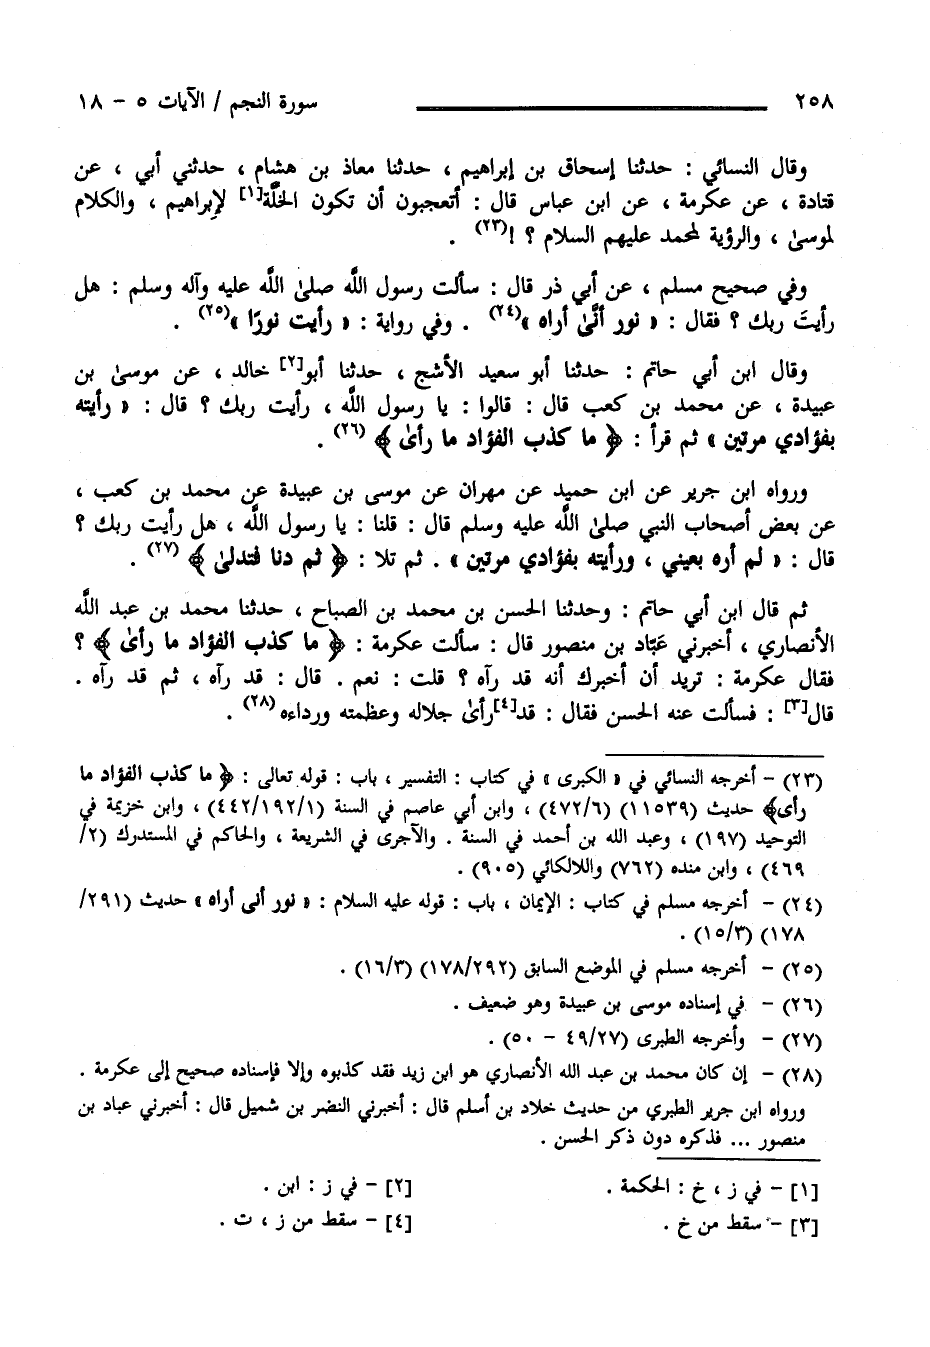 ٢٥٨ سورة النجم / الآيات ٥ - ١٨
وقال النسائي : حدثنا إسحاق بن إبراهيم ، حدثنا معاذ بن هشام ، حدثني أبي ، عن
قتادة ، عن عكرمة ، عن ابن عباس قال : أتعجبون أن تكون الخلَّة[١] لإبراهيم ، والكلام
لموسىٰ ، والرؤية لمحمد عليهم السلام ؟ !(٢٣) .
وفي صحيح مسلم ، عن أبي ذر قال : سألت رسول اللَّه صلىٰ اللَّه عليه وآله وسلم : هل
رأيتَ ربك ؟ فقال : « نور أنَّىٰ أراه »(٢٤) . وفي رواية : « رأيت نورًا »(٢٥) .
وقال ابن أبي حاتم : حدثنا أبو سعيد الأشج ، حدثنا أبو[٢] خالد ، عن موسىٰ بن
عبيدة ، عن محمد بن كعب قال : قالوا : يا رسول اللَّه ، رأيت ربك ؟ قال : « رأيته
بفؤادي مرتين » ثم قرأ : ﴿ ما كذب الفؤاد ما رأىٰ ﴾ (٢٦) .
ورواه ابن جرير عن ابن حميد عن مهران عن موسى بن عبيدة عن محمد بن كعب ،
عن بعض أصحاب النبي صلىٰ اللَّه عليه وسلم قال : قلنا : يا رسول اللَّه ، هل رأيت ربك ؟
قال : « لم أره بعيني ، ورأيته بفؤادي مرتين » . ثم تلا : ﴿ ثم دنا فتدلىٰ ﴾ (٢٧) .
ثم قال ابن أبي حاتم : وحدثنا الحسن بن محمد بن الصباح ، حدثنا محمد بن عبد اللَّه
الأنصاري ، أخبرني عَبَّاد بن منصور قال : سألت عكرمة : ﴿ ما كذب الفؤاد ما رأىٰ ﴾ ؟
فقال عكرمة : تريد أن أخبرك أنه قد رآه ؟ قلت : نعم . قال : قد رآه ، ثم قد رآه .
قال[٣] : فسألت عنه الحسن فقال : قد[٤]رأىٰ جلاله وعظمته ورداءه(٢٨) .
(٢٣) - أخرجه النسائي في « الكبرى » في كتاب : التفسير ، باب : قوله تعالى : ﴿ ما كذب الفؤاد ما
رأى﴾ حديث (١١٥٣٩) (٤٧٢/٦) ، وابن أبي عاصم في السنة (٤٤٢/١٩٢/١) ، وابن خزيمة في
التوحيد (١٩٧) ، وعبد الله بن أحمد في السنة . والآجرى في الشريعة ، والحاكم في المستدرك (٢/
٤٦٩) ، وابن منده (٧٦٢) واللالكائي (٩٠٥) .
(٢٤) - أخرجه مسلم في كتاب : الإيمان ، باب : قوله عليه السلام : « نور أنى أراه » حديث (٢٩١/
١٧٨) (١٥/٣) .
(٢٥) - أخرجه مسلم في الموضع السابق (١٧٨/٢٩٢) (١٦/٣) .
(٢٦) - في إسناده موسى بن عبيدة وهو ضعيف .
(٢٧) - وأخرجه الطبرى (٤٩/٢٧ - ٥٠) .
(٢٨) - إن كان محمد بن عبد الله الأنصاري هو ابن زيد فقد كذبوه وإلا فإسناده صحيح إلى عكرمة .
ورواه ابن جرير الطبري من حديث خلاد بن أسلم قال : أخبرني النضر بن شميل قال : أخبرني عباد بن
منصور ... فذكره دون ذكر الحسن .
[١] - في ز ، خ : الحكمة . [٢] - في ز : ابن .
[٣] - سقط من خ . [٤] - سقط من ز ، ت .